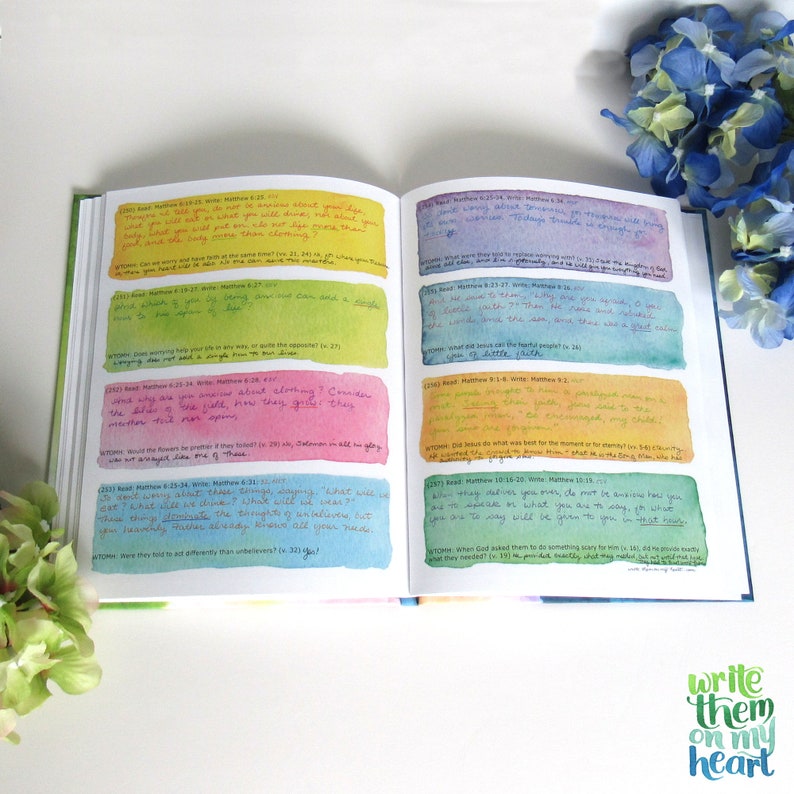 (250) Read: Matthew 6:19-25. Write: Matthew 6:25. ESV
Therefore I tell you, do not be anxious about your life,
what you will eat or what you will drink, nor about your
body, what you will put on. Is not life more than
food, and the body more than clothing?
WTOMH: Can we worry and have faith at the same time? (vv. 21, 24) No, for where your treasure
is, there your heart will be also. No one can serve two masters.
(251) Read: Matthew 6:19-27. Write: Matthew 6:27. ESV
And which of you by being anxious can add a single
hour to his span of life?
WTOMH: Does worrying help your life in any way, or quite the opposite? (v. 27)
Worrying does not add a single hour to our lives.
(252) Read: Matthew 6:25-34. Write: Matthew 6:28. ESV
And why are you anxious about clothing? Consider
the lilies of the field, how they grow: they
neither toil nor spin,
WTOMH: Would the flowers be prettier if they toiled? (v. 29) No, Solomon in all his glory
was not arrayed like one of these.
(253) Read: Matthew 6:25-34. Write: Matthew 6:31; 32, NLT
So don't worry about these things, saying, "What will we
eat? What will we drink? What will we wear?"
These things dominate the thoughts of unbelievers, but
your heavenly Father already knows all your needs.
WTOMH: Were they told to act differently than unbelievers? (v. 32) Yes!
Read: Matthew 6:25-34. Write: Matthew 6:34.
don't worry about tomorrow, for tomorrow will bring
its own worries. Today's trouble is enough for
today.
WTOMH: What were they told to replace worrying with? (v. 33) Seek the Kingdom of God
above all else, and live righteously, and He will give you everything you need.
(255) Read: Matthew 8:23-27. Write: Matthew 8:26. ESV
And He said to them, "Why are you afraid, O you
of little faith?" Then He rose and rebuked
the wind, and the sea, and there was a great calm
WTOMH: What did Jesus call the fearful people? (v. 26)
You of little faith
(256) Read: Matthew 9:1-8. Write: Matthew 9:2. NLT
Some people brought to him a paralyzed man on a
mat. Seeing their faith, Jesus said to the
paralyzed man, "Be encouraged, my child!
Your sins are forgiven."
WTOMH: Did Jesus do what was best for the moment or for eternity? (vv. 5-6) Eternity.
He wanted the crowd to know Him - that He is the Son of Man, who has
authority to forgive sins.
(257) Read: Matthew 10:16-20. Write: Matthew 10:19. ESV
When they deliver you over, do not be anxious how you
are to speak or what you are to say, for what
you are to say will be given to you in that hour.
WTOMH: When God asked them to do something scary for Him (v. 16), did He provide exactly
what they needed? (v. 19) He provided exactly what they needed, but not until that hour.
write them on my heart